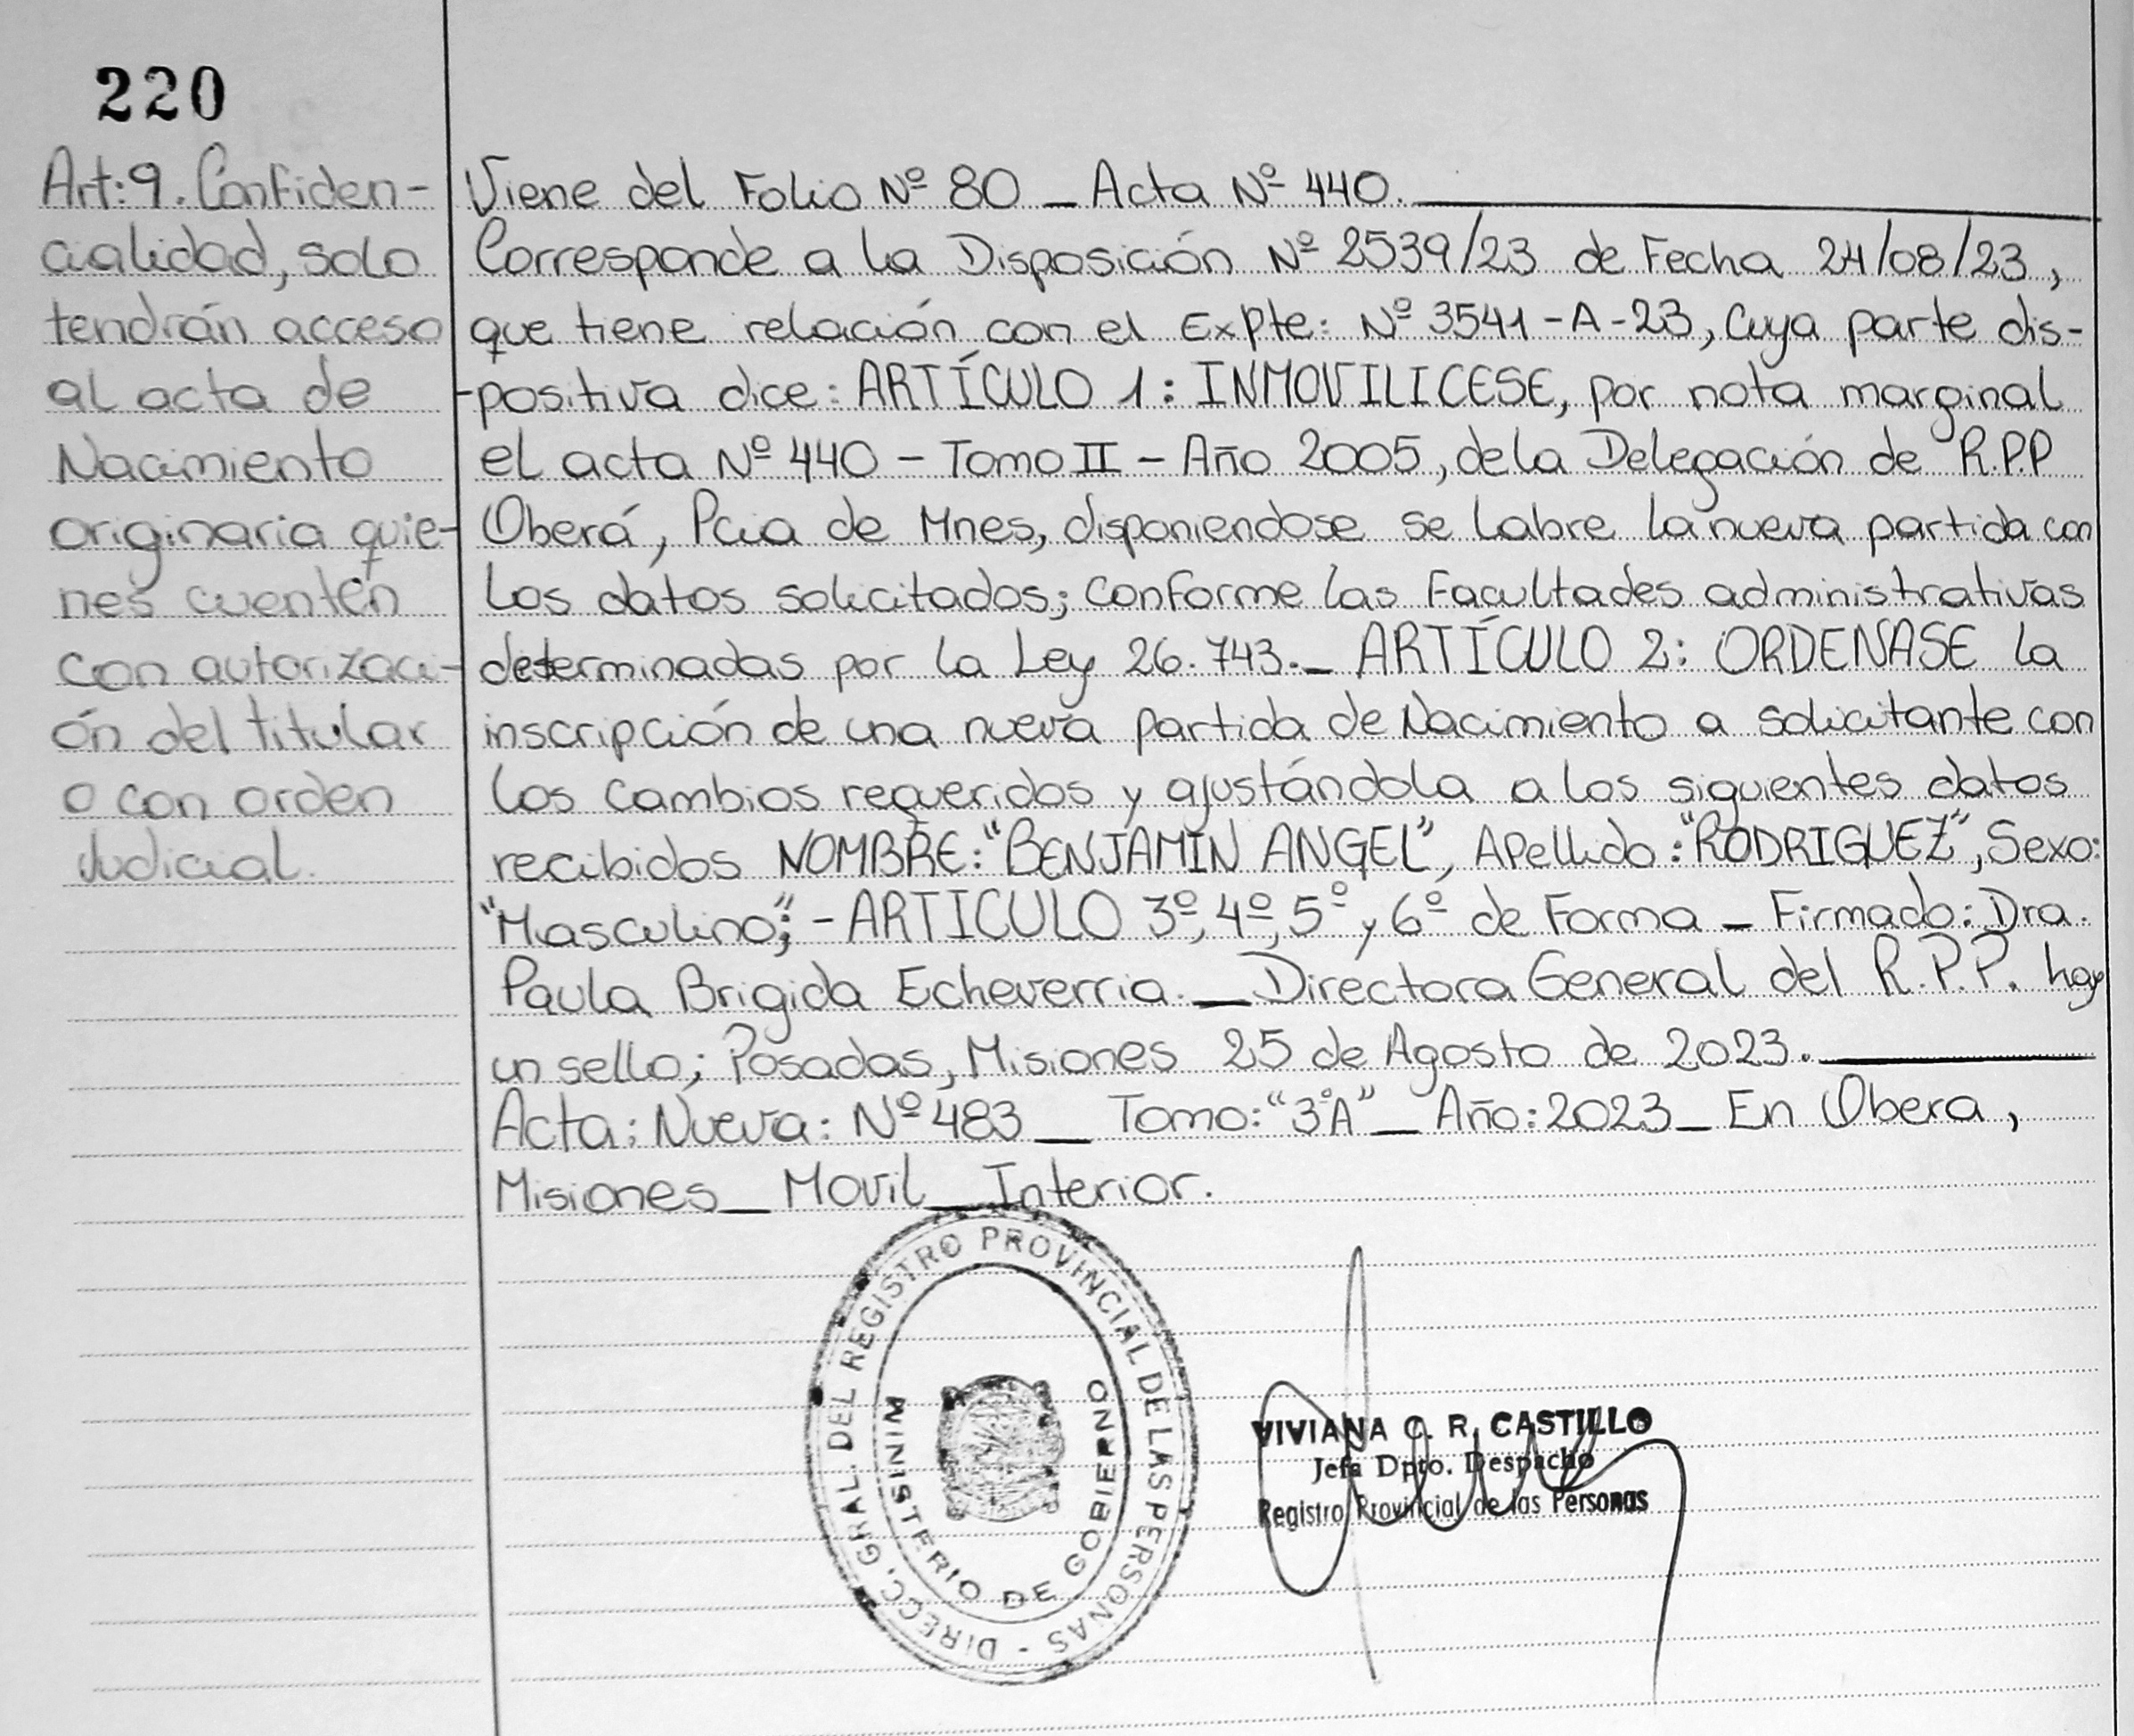 220
Art: 9. Confiden-
cialidad, solo
tendrán acceso
al acta de
Nacimiento
originaria quie-
nes cuenten
con autorizaci-
ón del titular
o con orden
Judicial.
Viene del Folio Nº 80 _ Acta Nº 440.
Corresponde a la Disposición Nº 2539/23 de Fecha 24/08/23,
que tiene relación con el Expte: Nº 3541-A-23, cuya parte dis-
-positiva dice: ARTÍCULO 1: INMOVILICESE, por nota marginal
el acta Nº 440 - Tomo II - Año 2005, de la Delegación de R.P.P
Oberá, Pcia de Mnes, disponiendose se labre la nueva partida con
los datos solicitados; conforme las Facultades administrativas
determinadas por la Ley 26.743._ ARTÍCULO 2: ORDENASE la
inscripción de una nueva partida de Nacimiento a solicitante con
los cambios requeridos y ajustándola a los siguientes datos
recibidos NOMBRE: "BENJAMÍN ANGEL", Apellido: "RODRIGUEZ", Sexo:
"Masculino"; - ARTICULO 3º, 4º, 5º y 6º de Forma _ Firmado: Dra.
Paula Brigida Echeverria. _ Directora General del R.P.P. hay
un sello; Posadas, Misiones 25 de Agosto de 2023.
Acta: Nueva: Nº 483 _ Tomo: "3ºA" _ Año: 2023 _ En Obera,
Misiones _ Movil _ Interior.
DIRECC. GRAL. DEL REGISTRO PROVINCIAL DE LAS PERSONAS -
MINISTERIO DE GOBIERNO
VIVIANA C. R. CASTILLO
Jefa Dpto. Despacho
Registro Provincial de las Personas